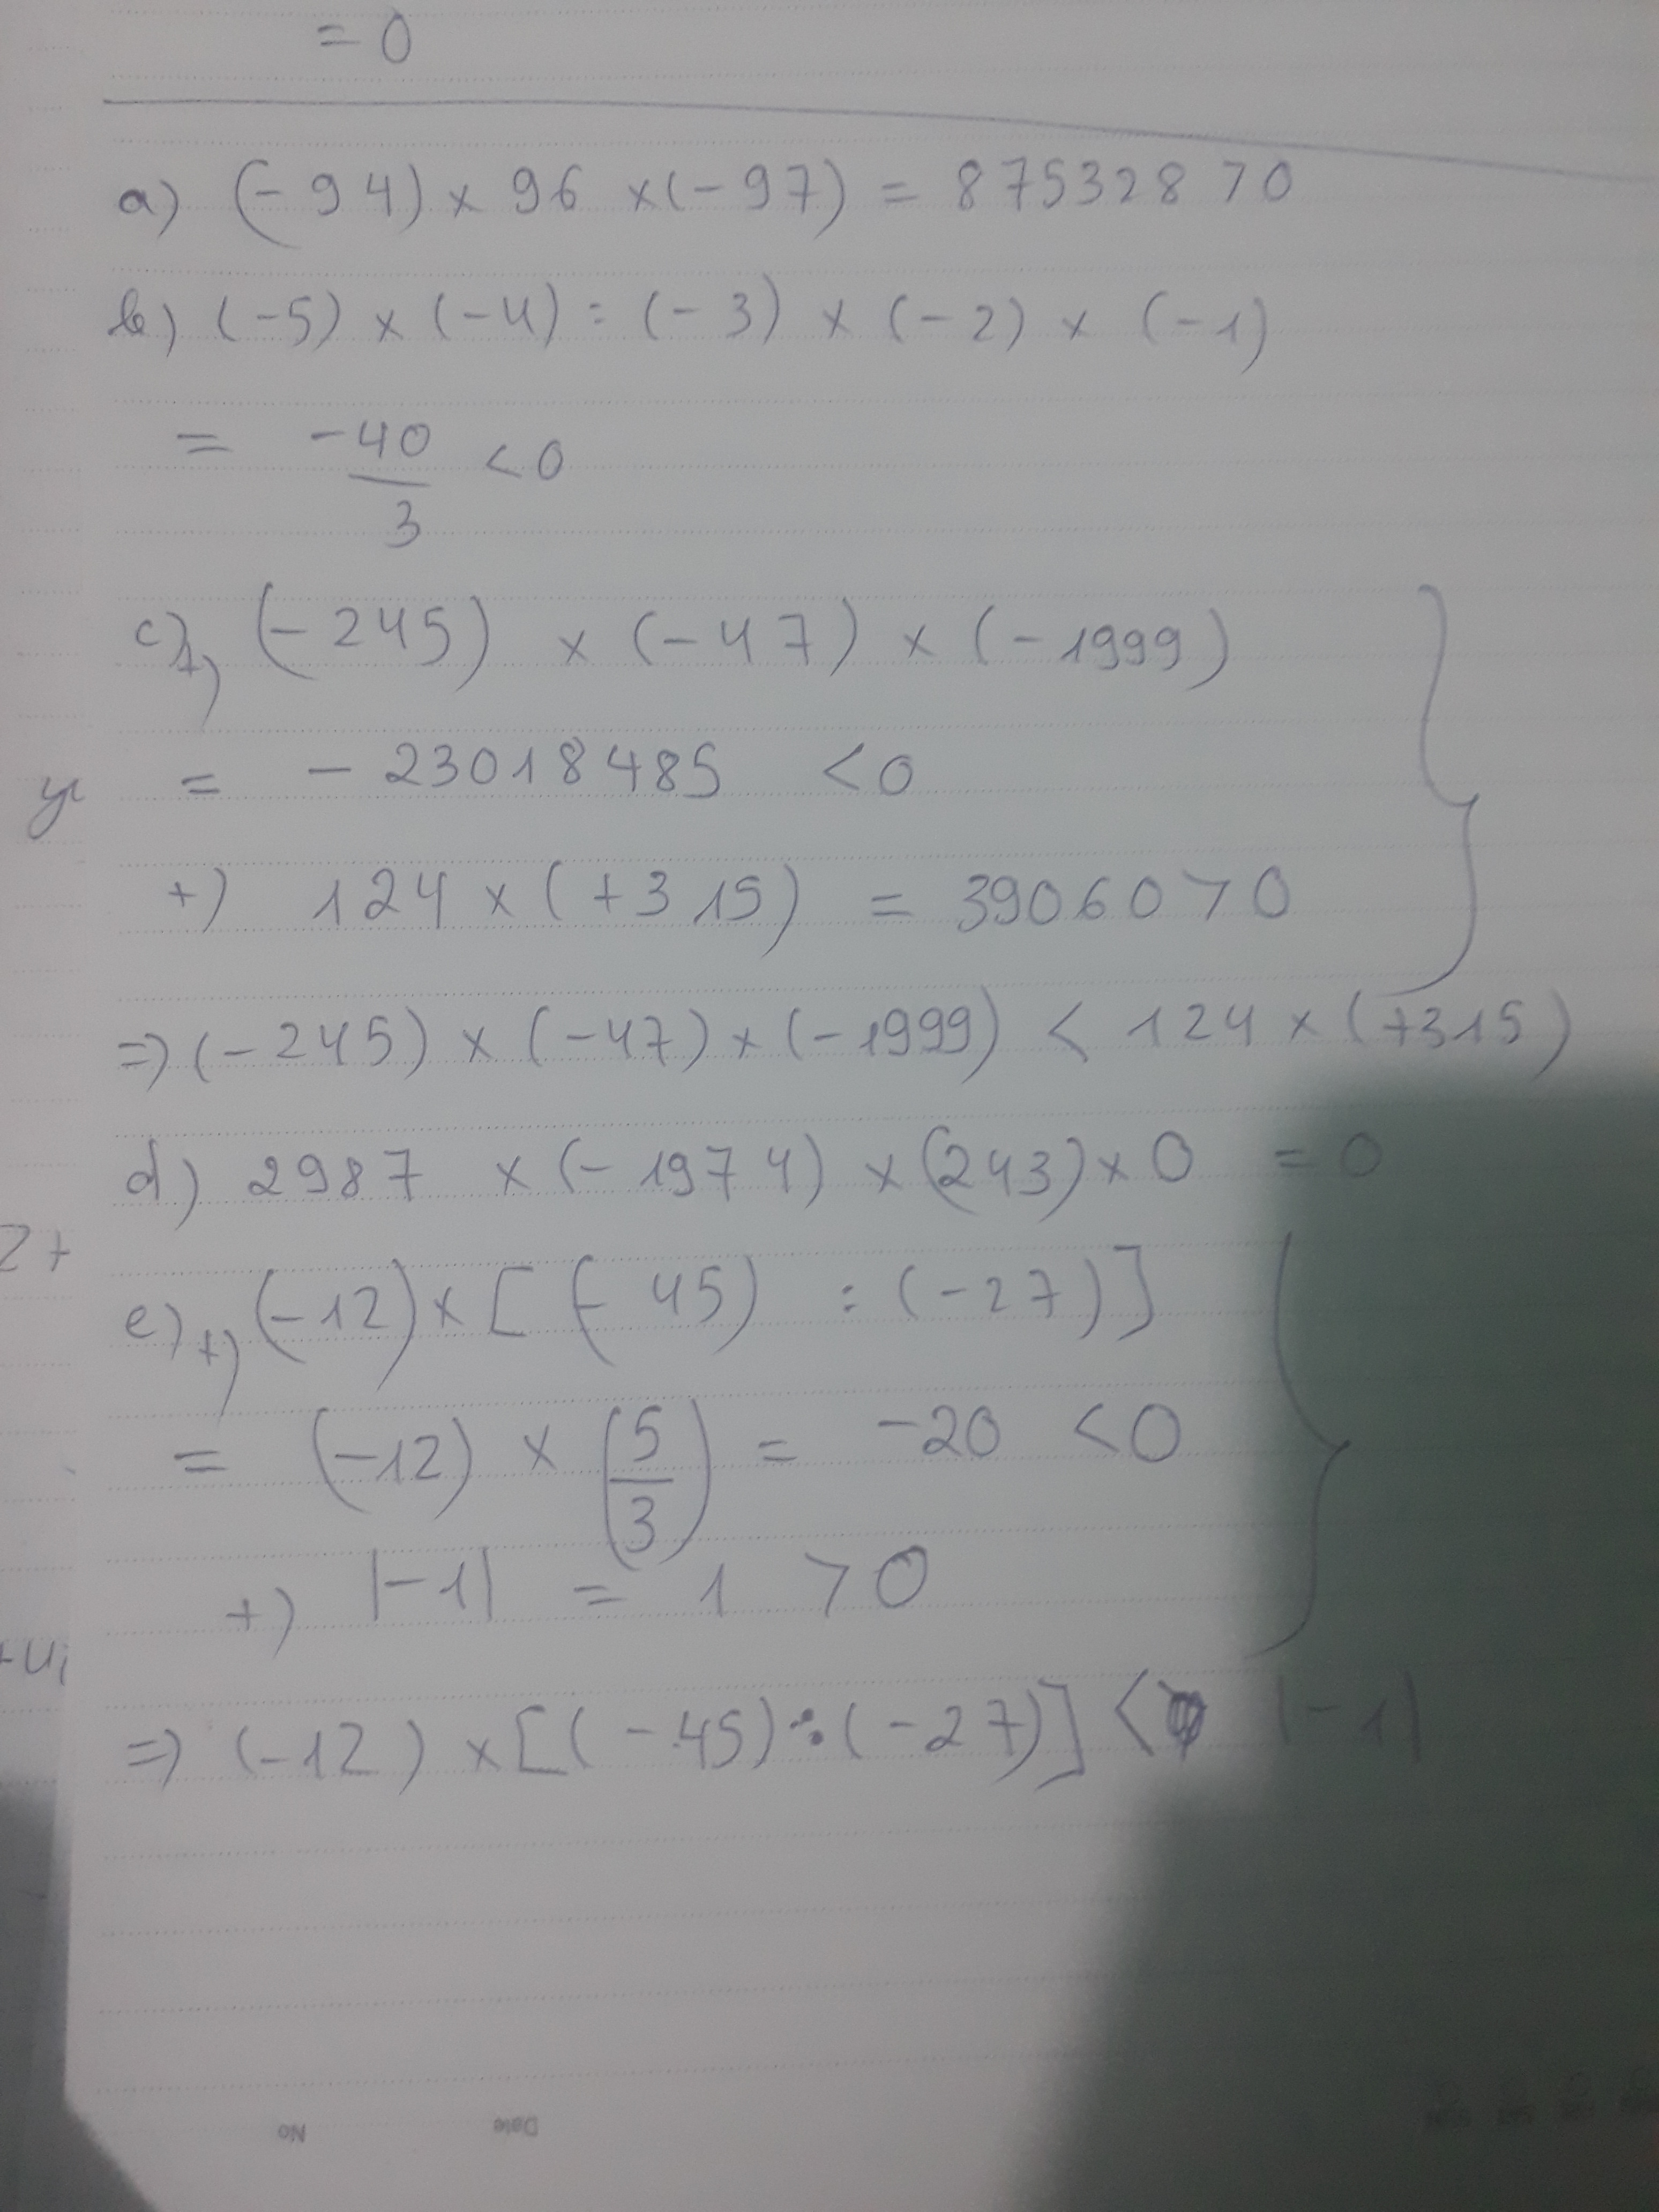 = 0
a) (-94) × 96 × (-97) = 875328 > 0
b) (-5) × (-4) : (-3) × (-2) × (-1)
= -40/3 < 0
c) +) (-245) × (-47) × (-1999)
= -23018485 < 0
+) 124 × (+315) = 39060 > 0
=> (-245) × (-47) × (-1999) < 124 × (+315)
d) 2987 × (-1974) × (243) × 0 = 0
e) +) (-12) × [(-45) : (-27)]
= (-12) × (5/3) = -20 < 0
+) |-1| = 1 > 0
=> (-12) × [(-45) : (-27)] < |-1|
No Date